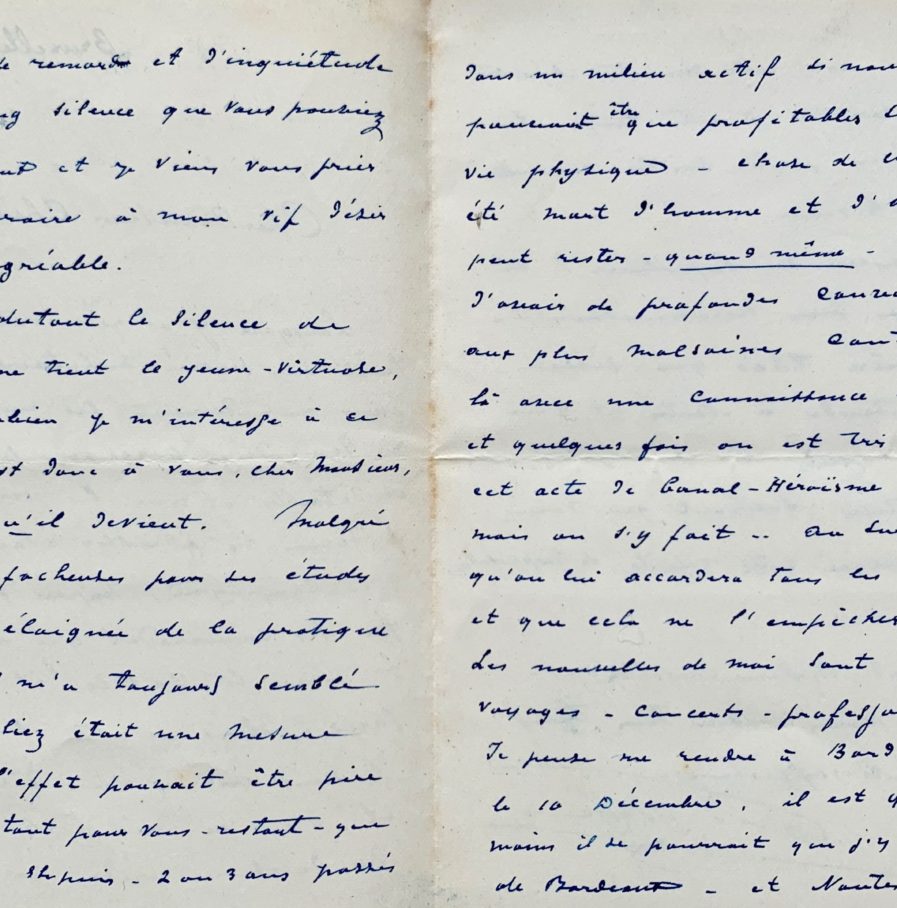 de remords et d'inquiétude
silence que vous pouviez
et je viens vous prier
à mon vif désir
gréable.
le silence de
tient le jeune-virtuose,
je m'intéresse à ce
donc à vous, cher Monsieur,
qu'il devient. Malgré
facheuses pour ses études
éloignée de la pratique
m'a toujours semblé
était une mesure
l'effet pouvait être pire
tout pour vous-restant-que
depuis - 2 ou 3 ans passés
dans un milieu actif si nou
pouvait être que profitables
vie physique - chose de
été mort d'homme et l'
peut rester - quand même -
d'avoir de profondes
aux plus malsaines
là avec une connaissance
et quelques fois on est très
cet acte de banal-Héroïsme
mais on s'y fait .. au
qu'on lui accordera tous les
et que cela ne l'empêcher
Les nouvelles de moi sont
voyages - concerts - professo
Je pense me rendre à Bord
le 10 Décembre, il est
moins il se pourrait que j'y
de Bordeaux - et Nantes